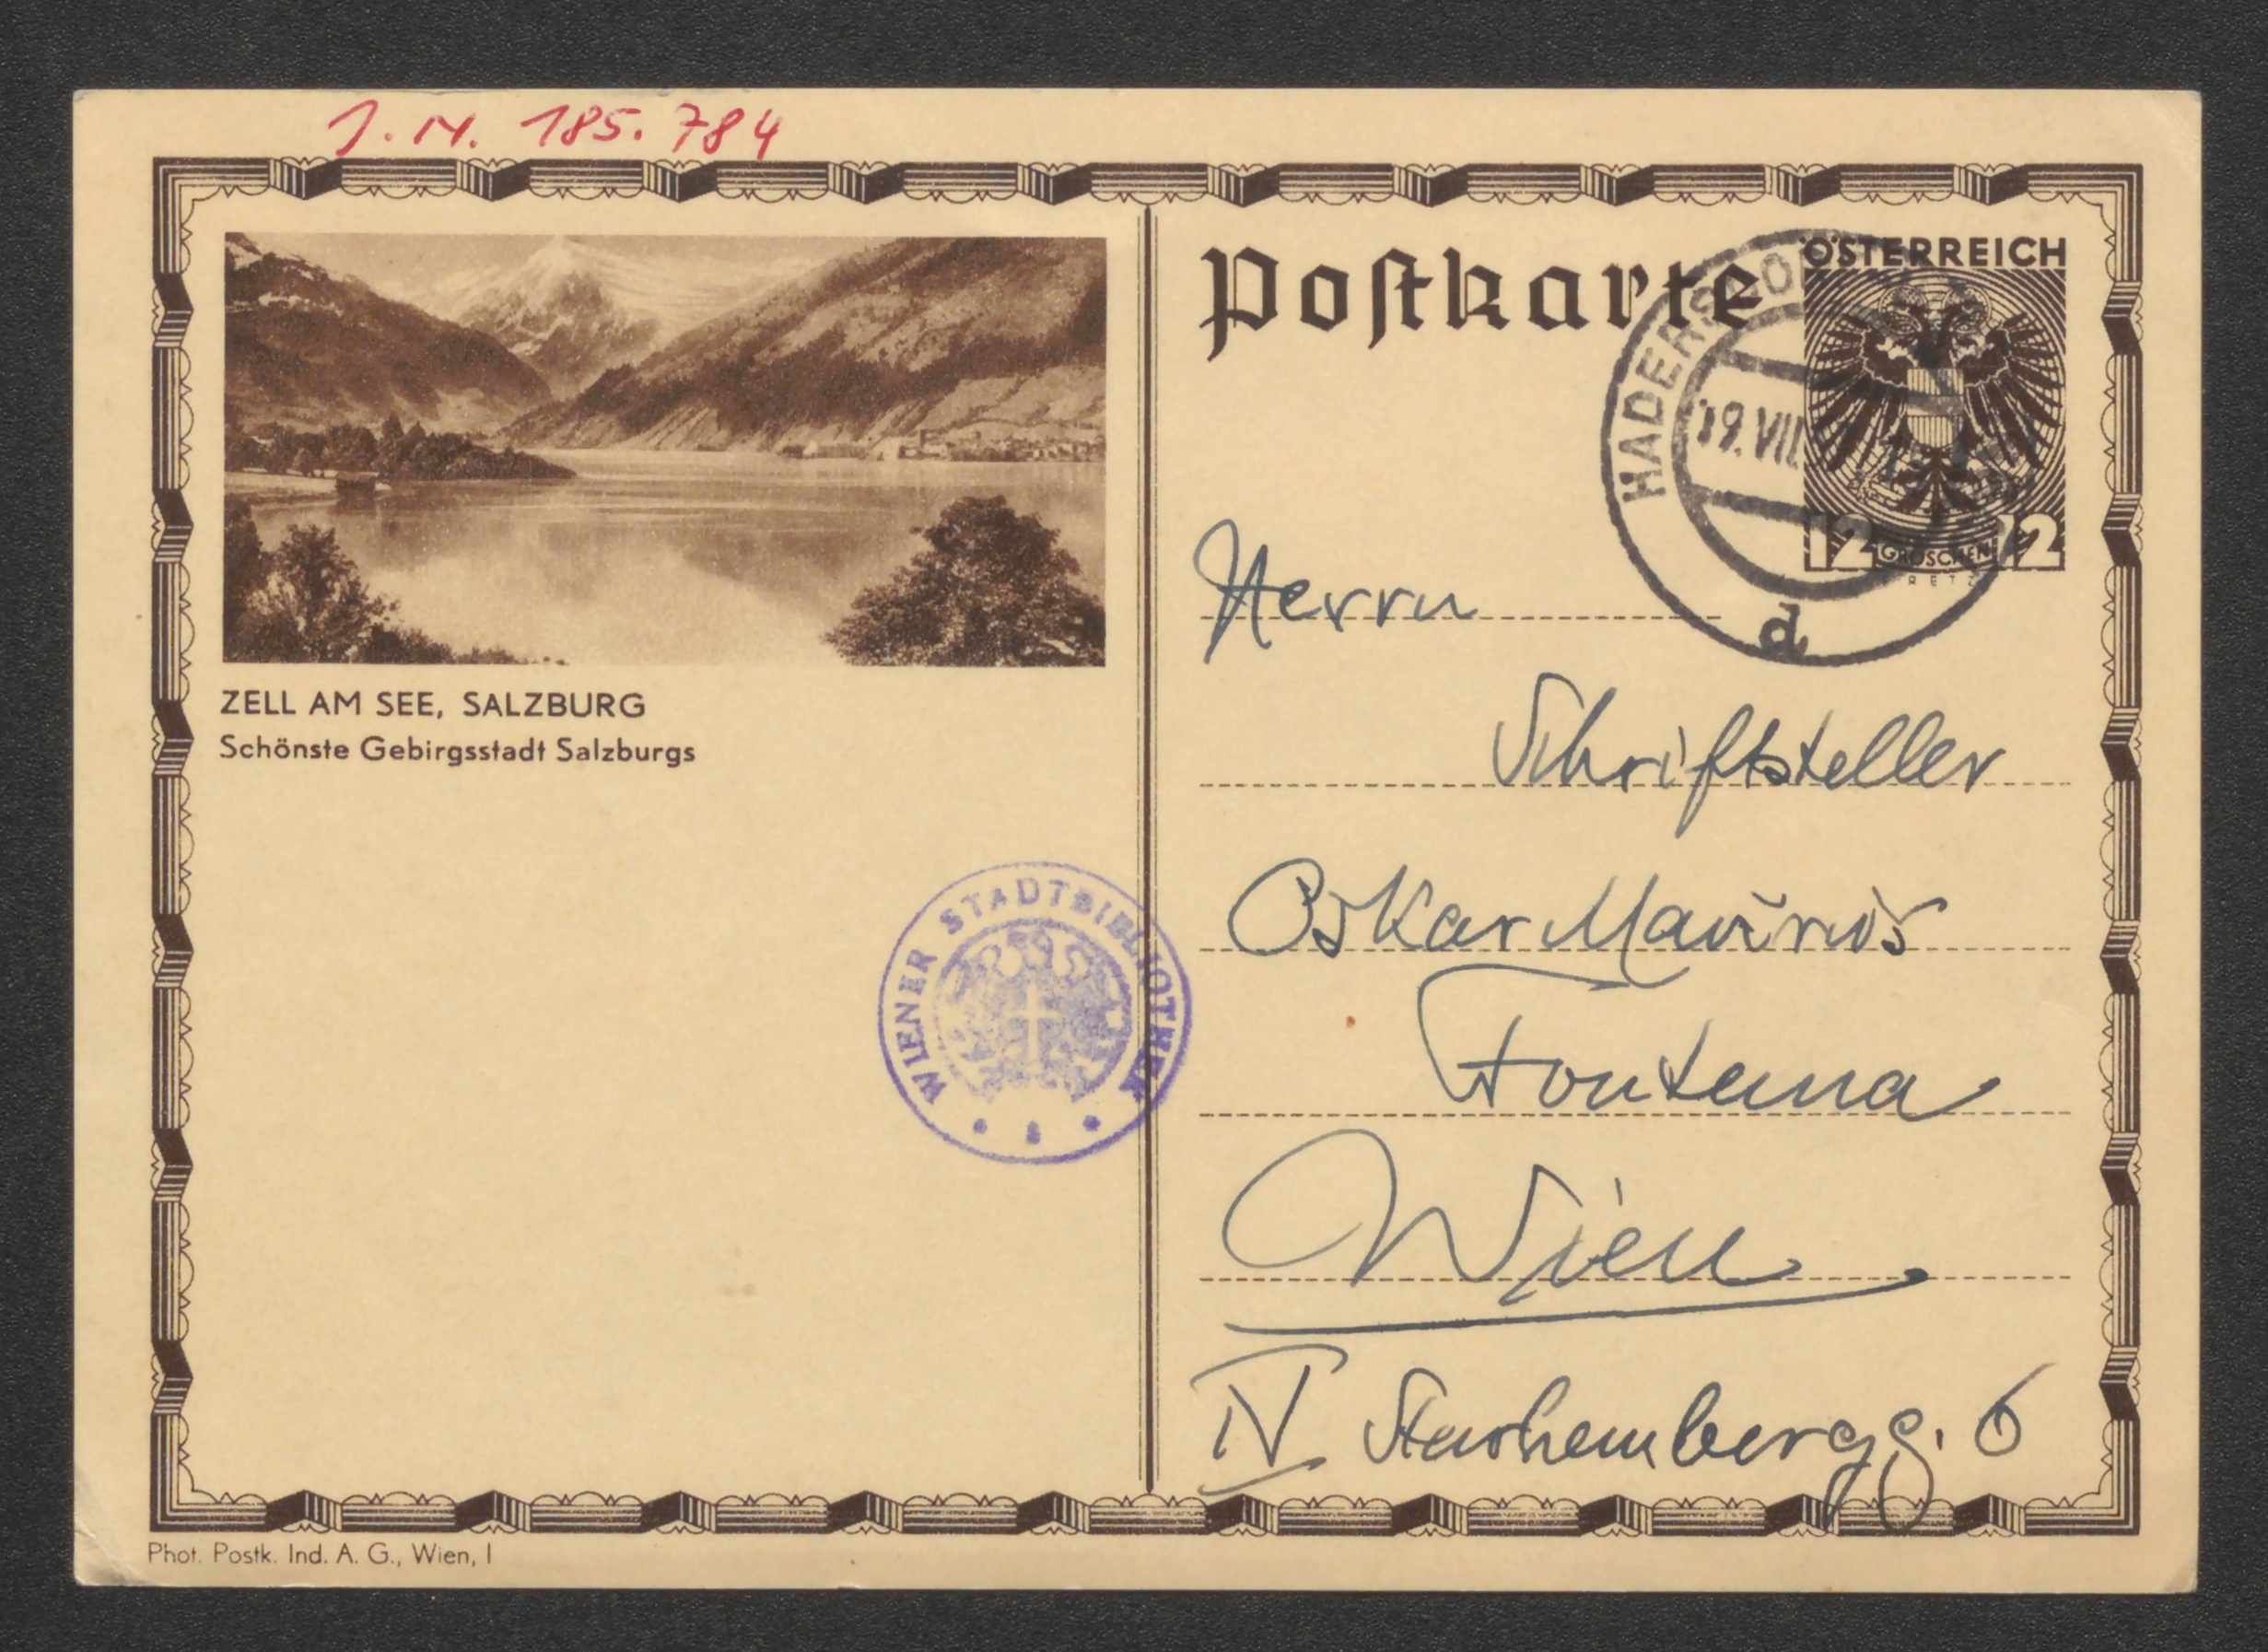 J. N. 185.784
ZELL AM SEE, SALZBURG
Schönste Gebirgsstadt Salzburgs
WIENER STADTBIBLIOTHEK
Phot. Postk. Ind. A. G., Wien, I
Postkarte
ÖSTERREICH
12 GROSCHEN 12
RETZ
HADERSDO
19. VII
d
Herrn
Schriftsteller
Oskar Maurus
Fontana
Wien
IV Starhembergg. 6